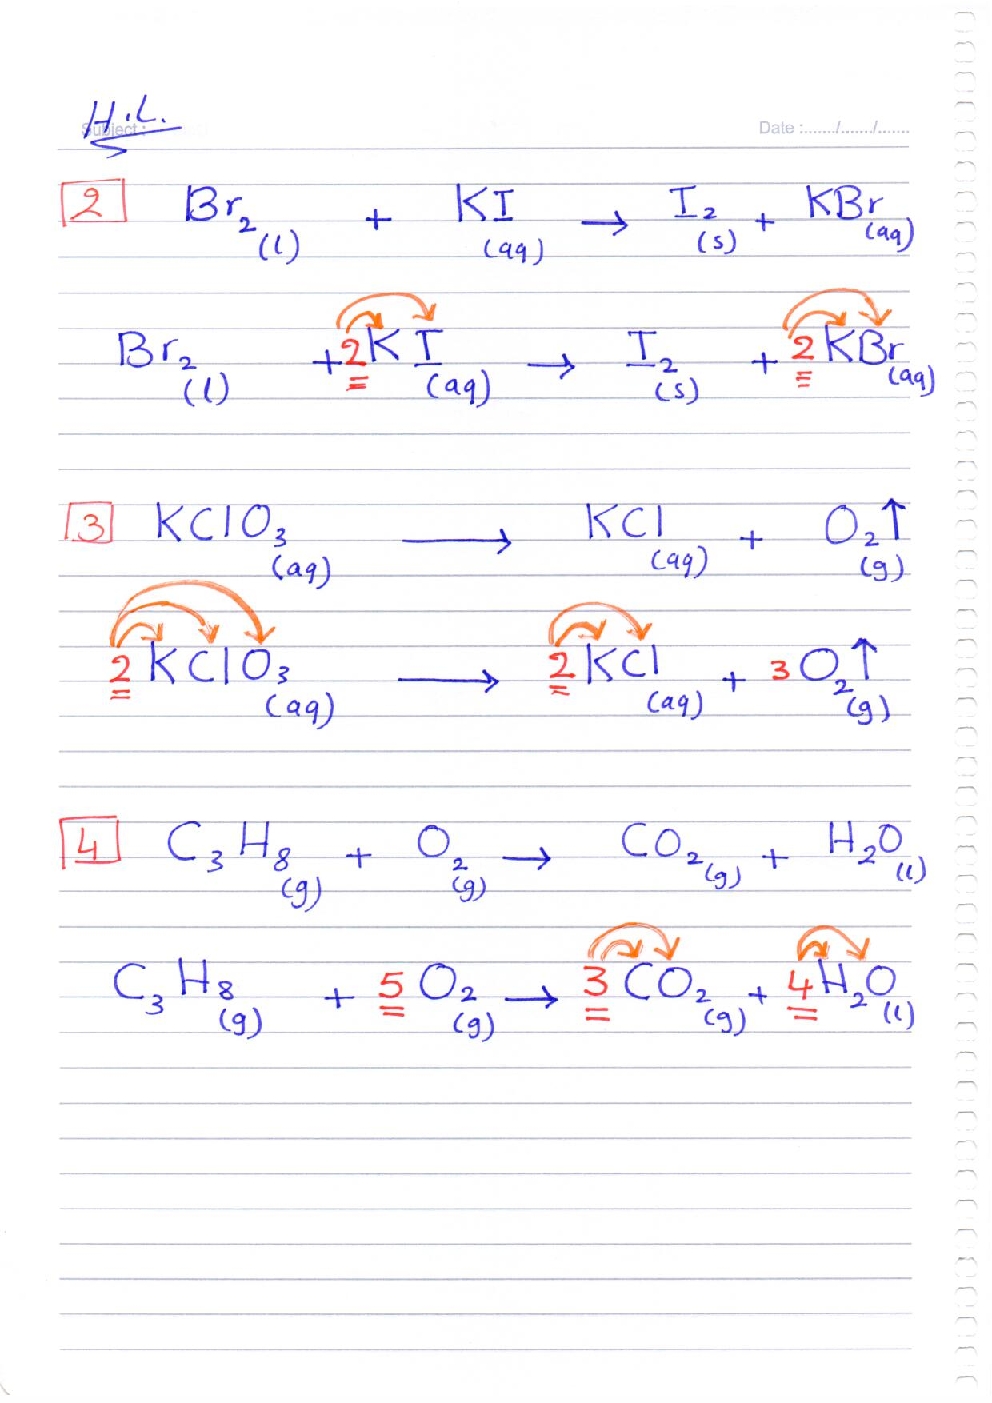 H.L.
Subject :
Date :......./......./.......
2 Br₂(l) + KI(aq) → I₂(s) + KBr(aq)
Br₂(l) + 2KI(aq) → I₂(s) + 2KBr(aq)
3 KClO₃(aq) → KCl(aq) + O₂↑(g)
2KClO₃(aq) → 2KCl(aq) + 3O₂↑(g)
4 C₃H₈(g) + O₂(g) → CO₂(g) + H₂O(l)
C₃H₈(g) + 5O₂(g) → 3CO₂(g) + 4H₂O(l)